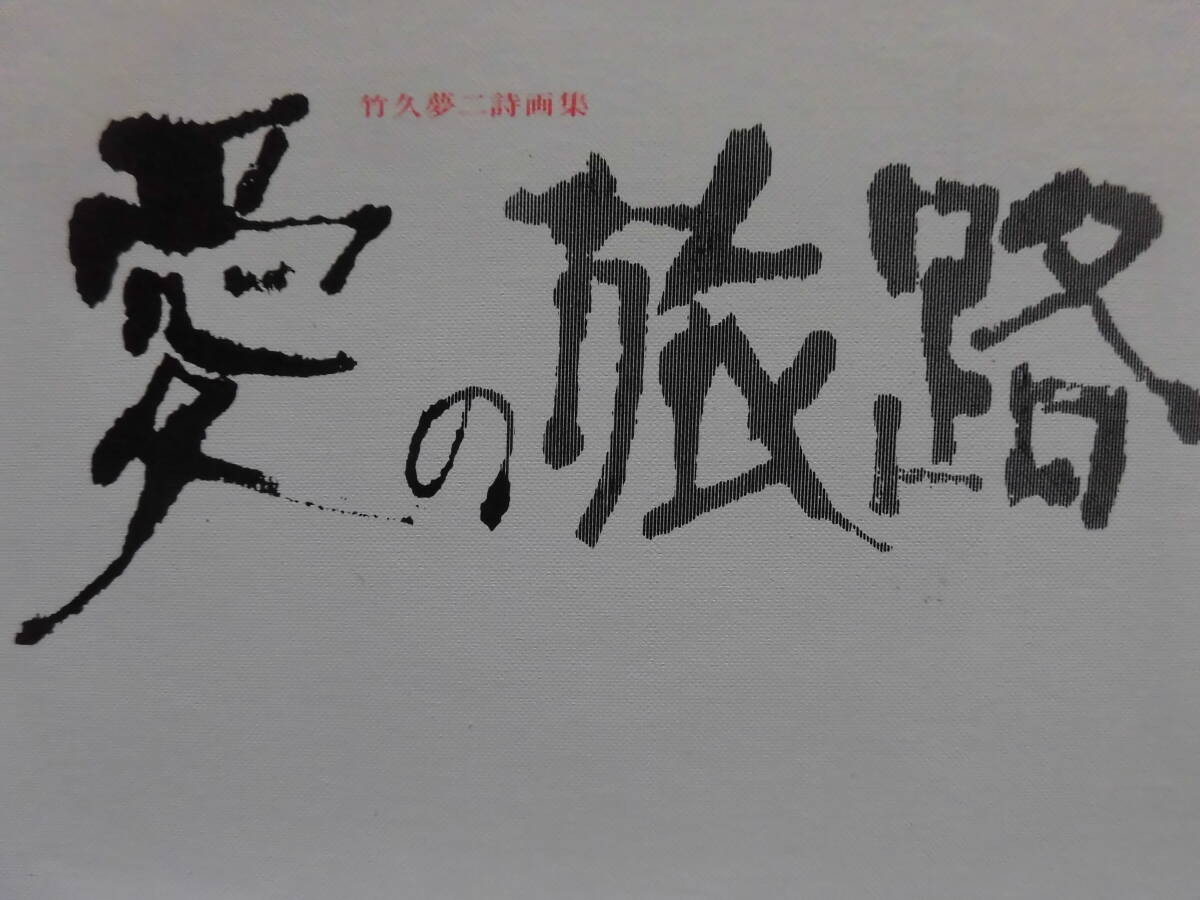 竹久夢二詩画集
愛の旅路